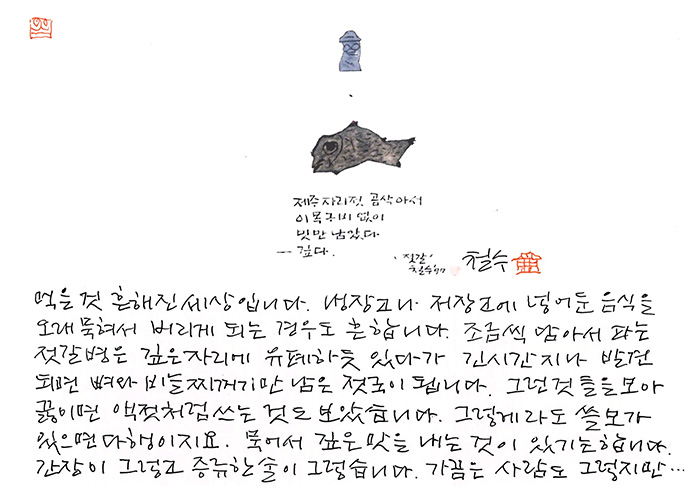 제주 자리젓 곰삭아서
이목구비 없이
빗만 남았다
— 깊다.
'젓갈'
철수
철수
먹을 것 흔해진 세상입니다. 냉장고나 저장고에 넣어둔 음식을
오래 묵혀서 버리게 되는 경우도 흔합니다. 조금씩 담아서 파는
젓갈병은 깊은자리에 유폐하듯 있다가 긴시간 지나 발견
되면 뼈와 비늘찌꺼기만 남은 젓국이 됩니다. 그런것들을 모아
끓이면 액젓처럼 쓰는 것도 보았습니다. 그렇게라도 쓸모가
있으면 다행이지요. 묵어서 깊은 맛을 내는 것이 있기는합니다.
간장이 그렇고 증류한 술이 그렇습니다. 가끔은 사람도 그렇지만…